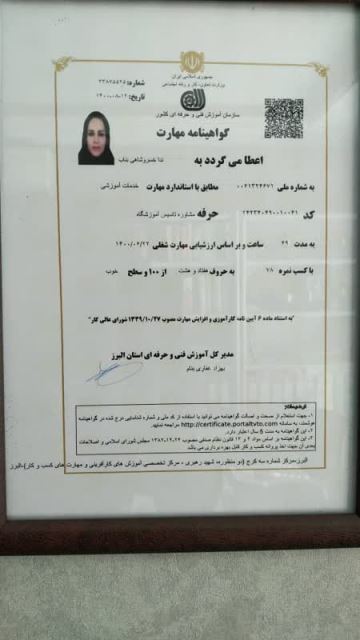 جمهوری اسلامی ایران
وزارت تعاون، کار و رفاه اجتماعی
شماره: ۳۳۸۷۵۵۲۵
تاریخ: ۱۴۰۰-۰۸-۱۲
سازمان آموزش فنی و حرفه ای کشور
گواهینامه مهارت
اعطا می گردد به ندا خسروشاهی بناب
به شماره ملی ۰۰۶۱۳۲۴۶۷۱ مطابق با استاندارد مهارت خدمات آموزشی
کد ۲۴۲۳۴۰۴۹۰۰۱۰۰۴۱ حرفه مشاوره تاسیس آموزشگاه
به مدت ۴۹ ساعت و بر اساس ارزشیابی مهارت شغلی ۱۴۰۰/۰۶/۲۲
با کسب نمره ۷۸ به حروف هفتاد و هشت از ۱۰۰ و سطح خوب
"به استناد ماده ۶ آیین نامه کارآموزی و افزایش مهارت مصوب ۱۳۴۹/۱۰/۲۷ شورای عالی کار"
مدیر کل آموزش فنی و حرفه ای استان البرز
بهزاد غفاری بنام
توضیحات:
۱- جهت استعلام از صحت و اصالت گواهینامه می توانید با استفاده از کد ملی و شماره شناسایی درج شده در گواهینامه
هوشمند، به سامانه http://certificate.portaltvto.com مراجعه نمایید.
۲- این گواهینامه به مدت ۵ سال اعتبار دارد.
۳- این گواهینامه بر اساس مواد ۴ و ۱۲ قانون نظام صنفی مصوب ۱۳۸۲,۱۲,۲۴ مجلس شورای اسلامی و اصلاحات
بعدی آن جهت اخذ پروانه کسب و کار قابل بهره برداری می باشد
البرز-مرکز شماره سه کرج (دو منظوره، شهید رهبری ، مرکز تخصصی آموزش های کارآفرینی و مهارت های کسب و کار)-البرز